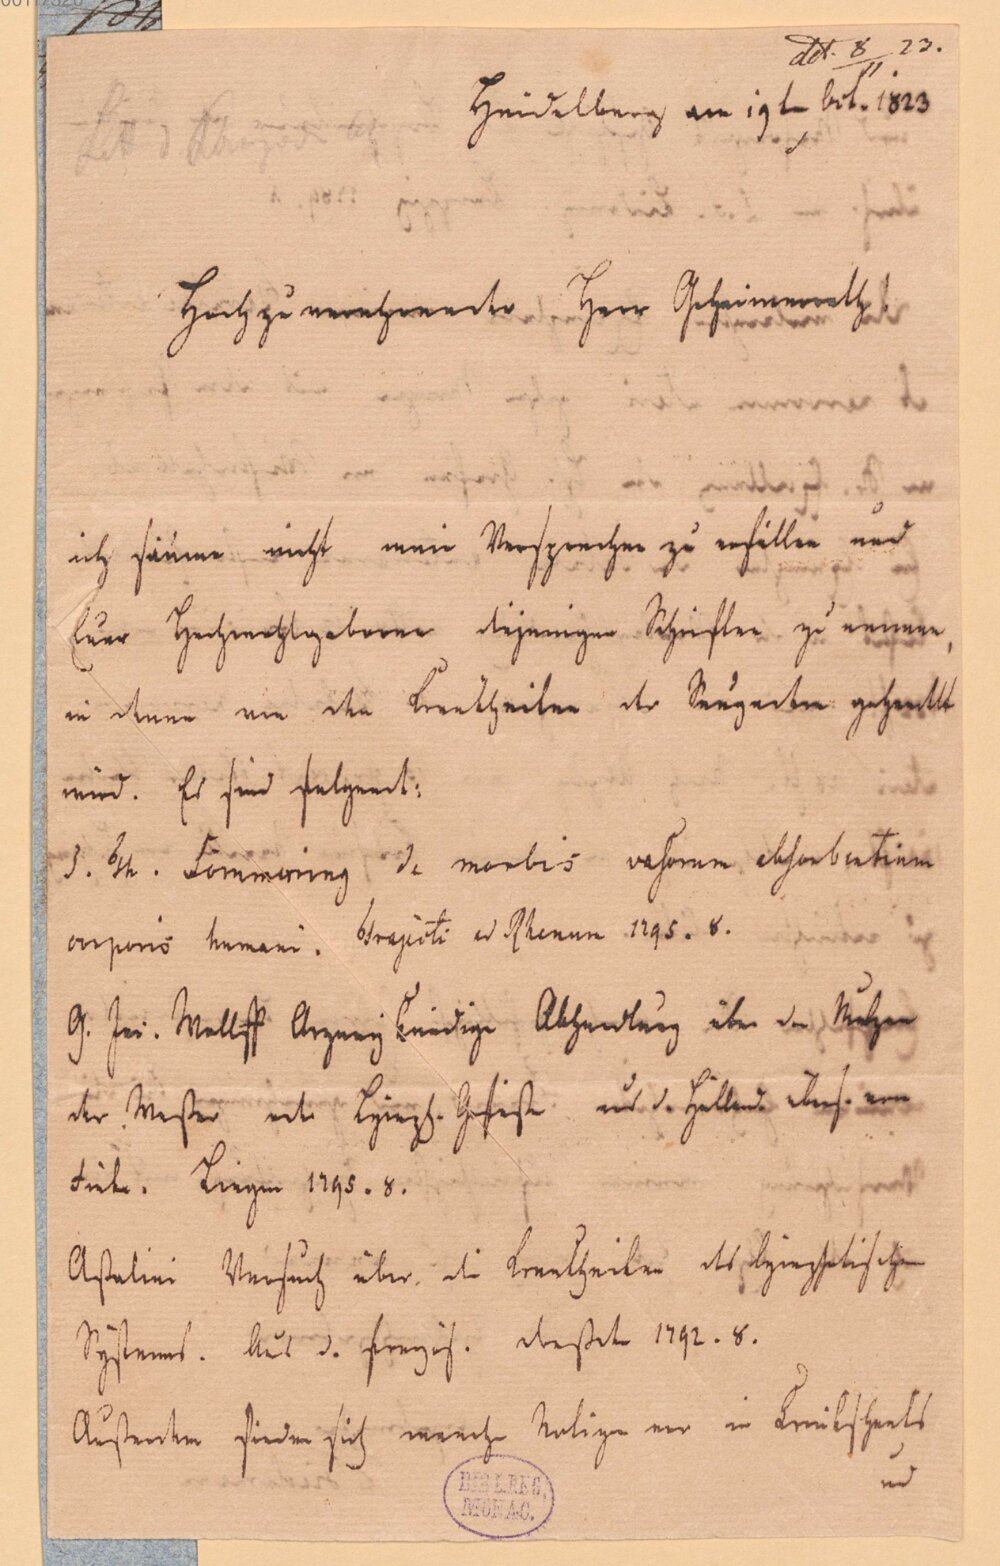 ddt. 8/11 23.
Heidelberg am 19t Oct. 1823
Hochzuverehrender Herr Geheimerrath!
ich säume nicht mein Versprechen zu erfüllen und
Euer Hochwohlgeboren diejenigen Schriften zu nennen,
in denen von den Krankheiten der Saugadern gehandelt
wird. Es sind folgende:
S. Th. Sömmering de morbis vasorum absorbentium
corporis humani. Trajecti ad Rhenum 1795. 8.
G. Wolff Arzneykundige Abhandlung über den Nutzen
der Wasser oder Lymph. Gefäße aus d. Holländ. übers. von
Lingen 1795. 8.
Assalini Versuch über die Krankheiten des lymphatischen
Systems. Aus d. französ. Dresden 1792. 8.
Außerdem finden sich manche Notizen vor in Cruikshanks
und
BIBL. REG.
MONAC.